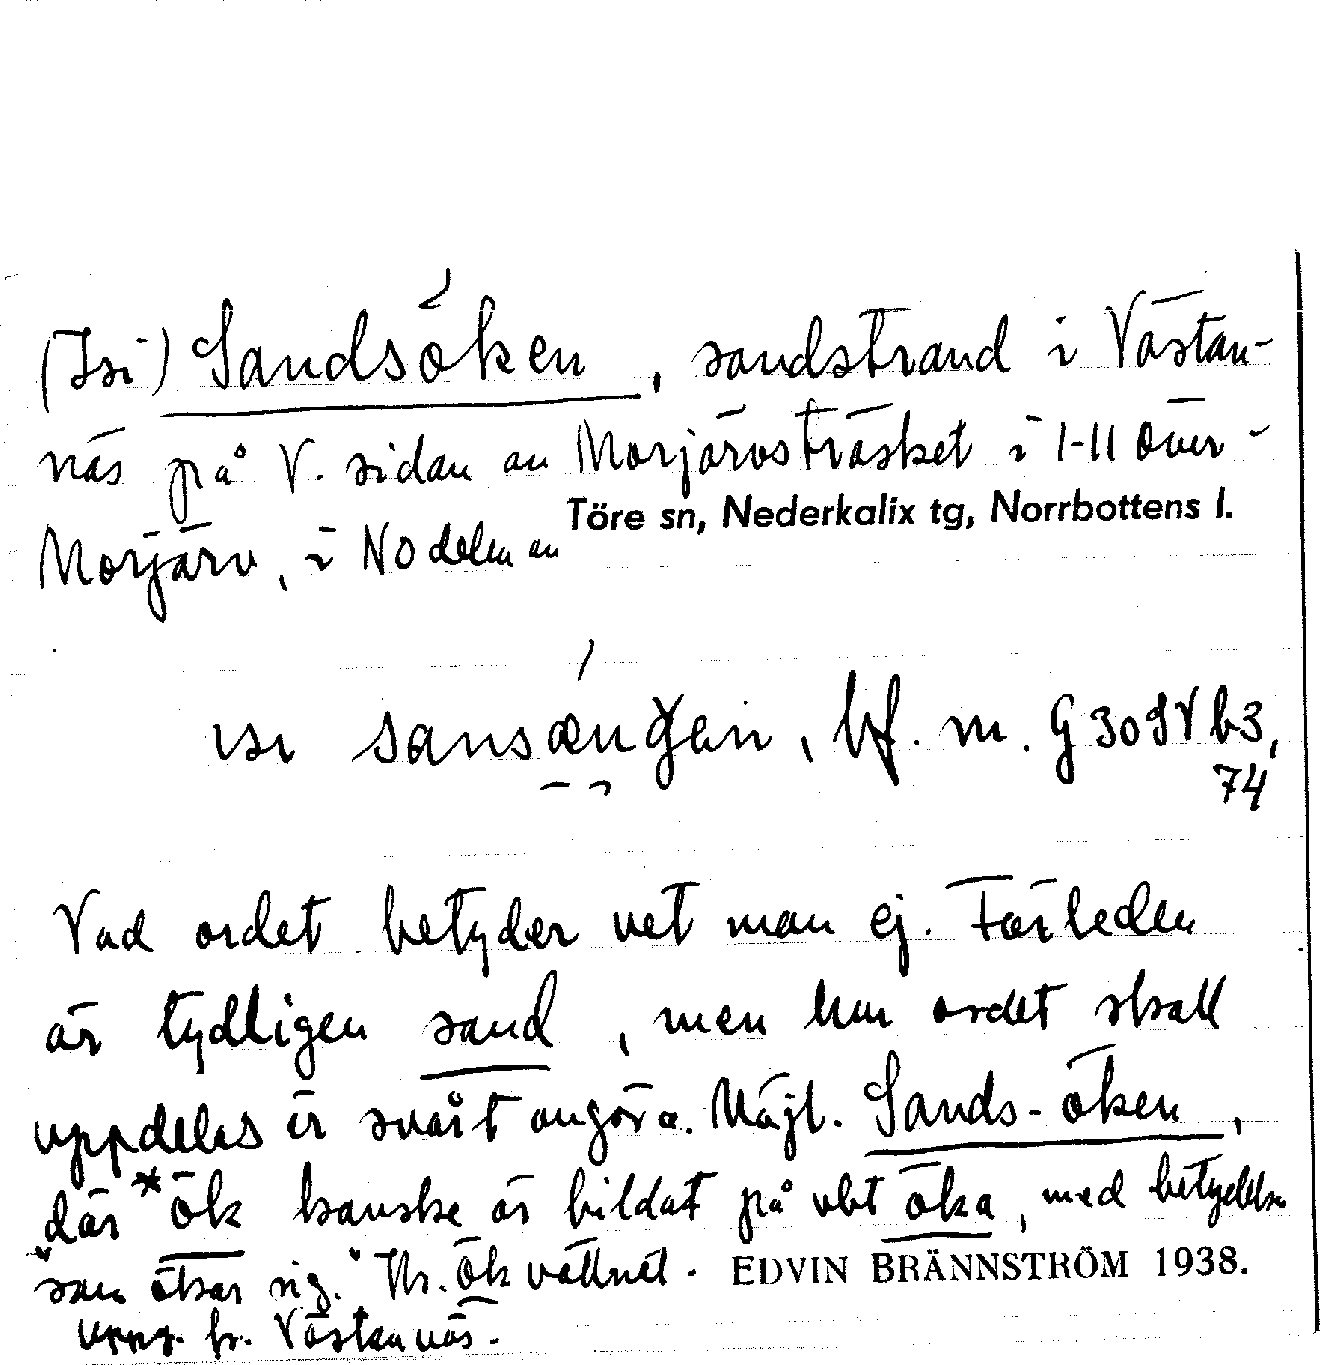 (Isi) Sandsöken, sandstrand i Västan-
näs på V. sidan av Morjärvsträsket i 1-11 Över-
Töre sn, Nederkalix tg, Norrbottens l.
Morjärv, i NO delen av
ısı sansænǥen, bf. m. G 30 SV b3,
74
Vad ordet betyder vet man ej. Förleden
är tydligen sand, men hur ordet skall
uppdelas är svårt avgöra. Möjl. Sands-öken,
där *ök kanske är bildat på vbt öka, med betydelse
"som ökar sig." Jfr. Ök vattnet. EDVIN BRÄNNSTRÖM 1938.
Uppg. fr. Västannäs.